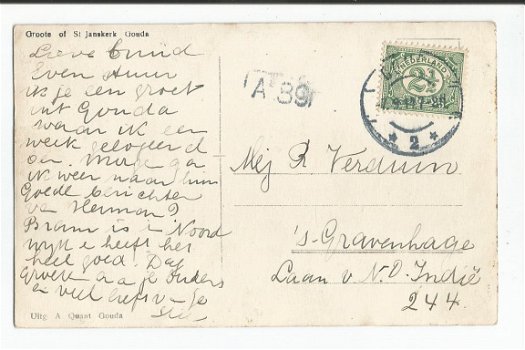 Groote of St Janskerk Gouda
Lieve Cuuid
Even stuur
ik je een groet
uit Gouda
waar ik een
week gelogeerd
ben. Morgen ga
ik weer naar huis
Goede berichten
van Herman?
Bram is i Noord
wijk e heeft het
heel goed. Dag
groeten aan je ouders
en veel liefs v. je
Uitg A Quant Gouda
A 89
NEDERLAND
2½
2
Mej R Verduin
's-Gravenhage
Laan v. N.O. Indië
244.